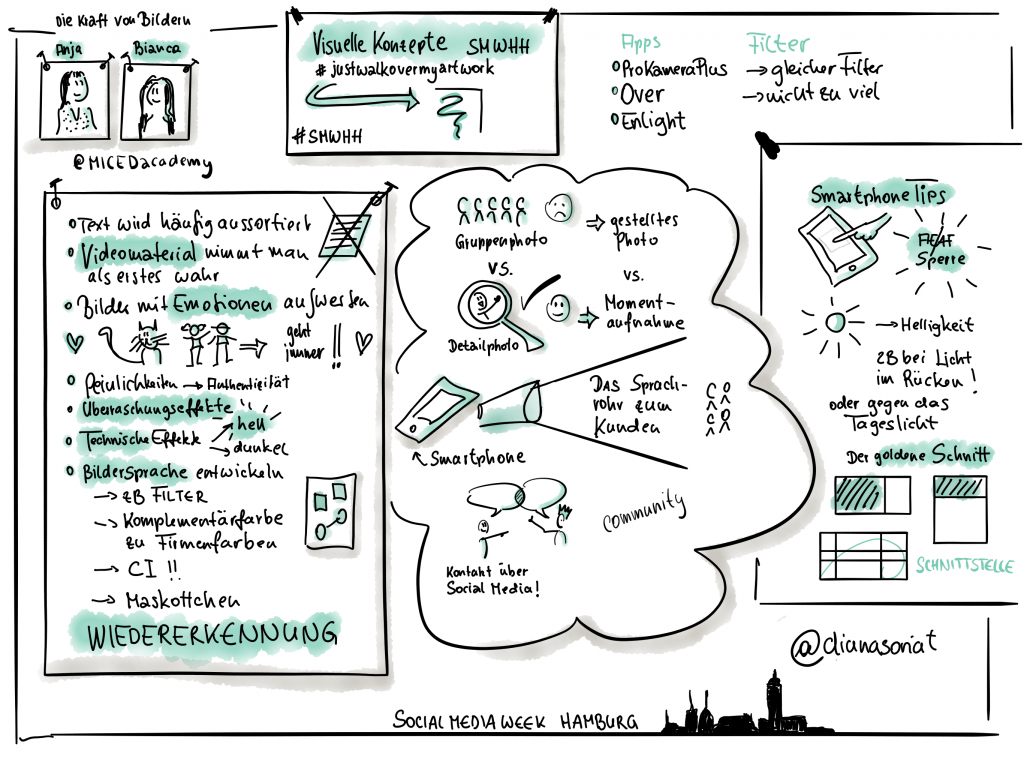 Die Kraft von Bildern
Anja
Bianca
@MICEDacademy
Visuelle Konzepte SMWHH
#justwalkovermyartwork
#SMWHH
Apps
ProKameraPlus
Over
Enlight
Filter
→ gleicher Filter
→ nicht zu viel
Text wird häufig aussortiert
Videomaterial nimmt man
als erstes wahr
Bilder mit Emotionen aufwerten
geht
immer!!
Peinlichkeiten → Authentizität
Überraschungseffekte
Technische Effekte
→ hell
→ dunkel
Bildersprache entwickeln
→ zB FILTER
→ Komplementärfarbe
zu Firmenfarben
→ CI !!
→ Maskottchen
WIEDERERKENNUNG
Gruppenphoto
⇒ gestelltes
Photo
vs.
vs.
Detailphoto
⇒ Moment-
aufnahme
Das Sprach-
rohr zum
Kunden
Smartphone
community
Kontakt über
Social Media!
Smartphone Tips
Sperre
→ Helligkeit
zB bei Licht
im Rücken!
oder gegen das
Tageslicht
Der goldene Schnitt
SCHNITTSTELLE
@dianasoriat
SOCIAL MEDIA WEEK HAMBURG